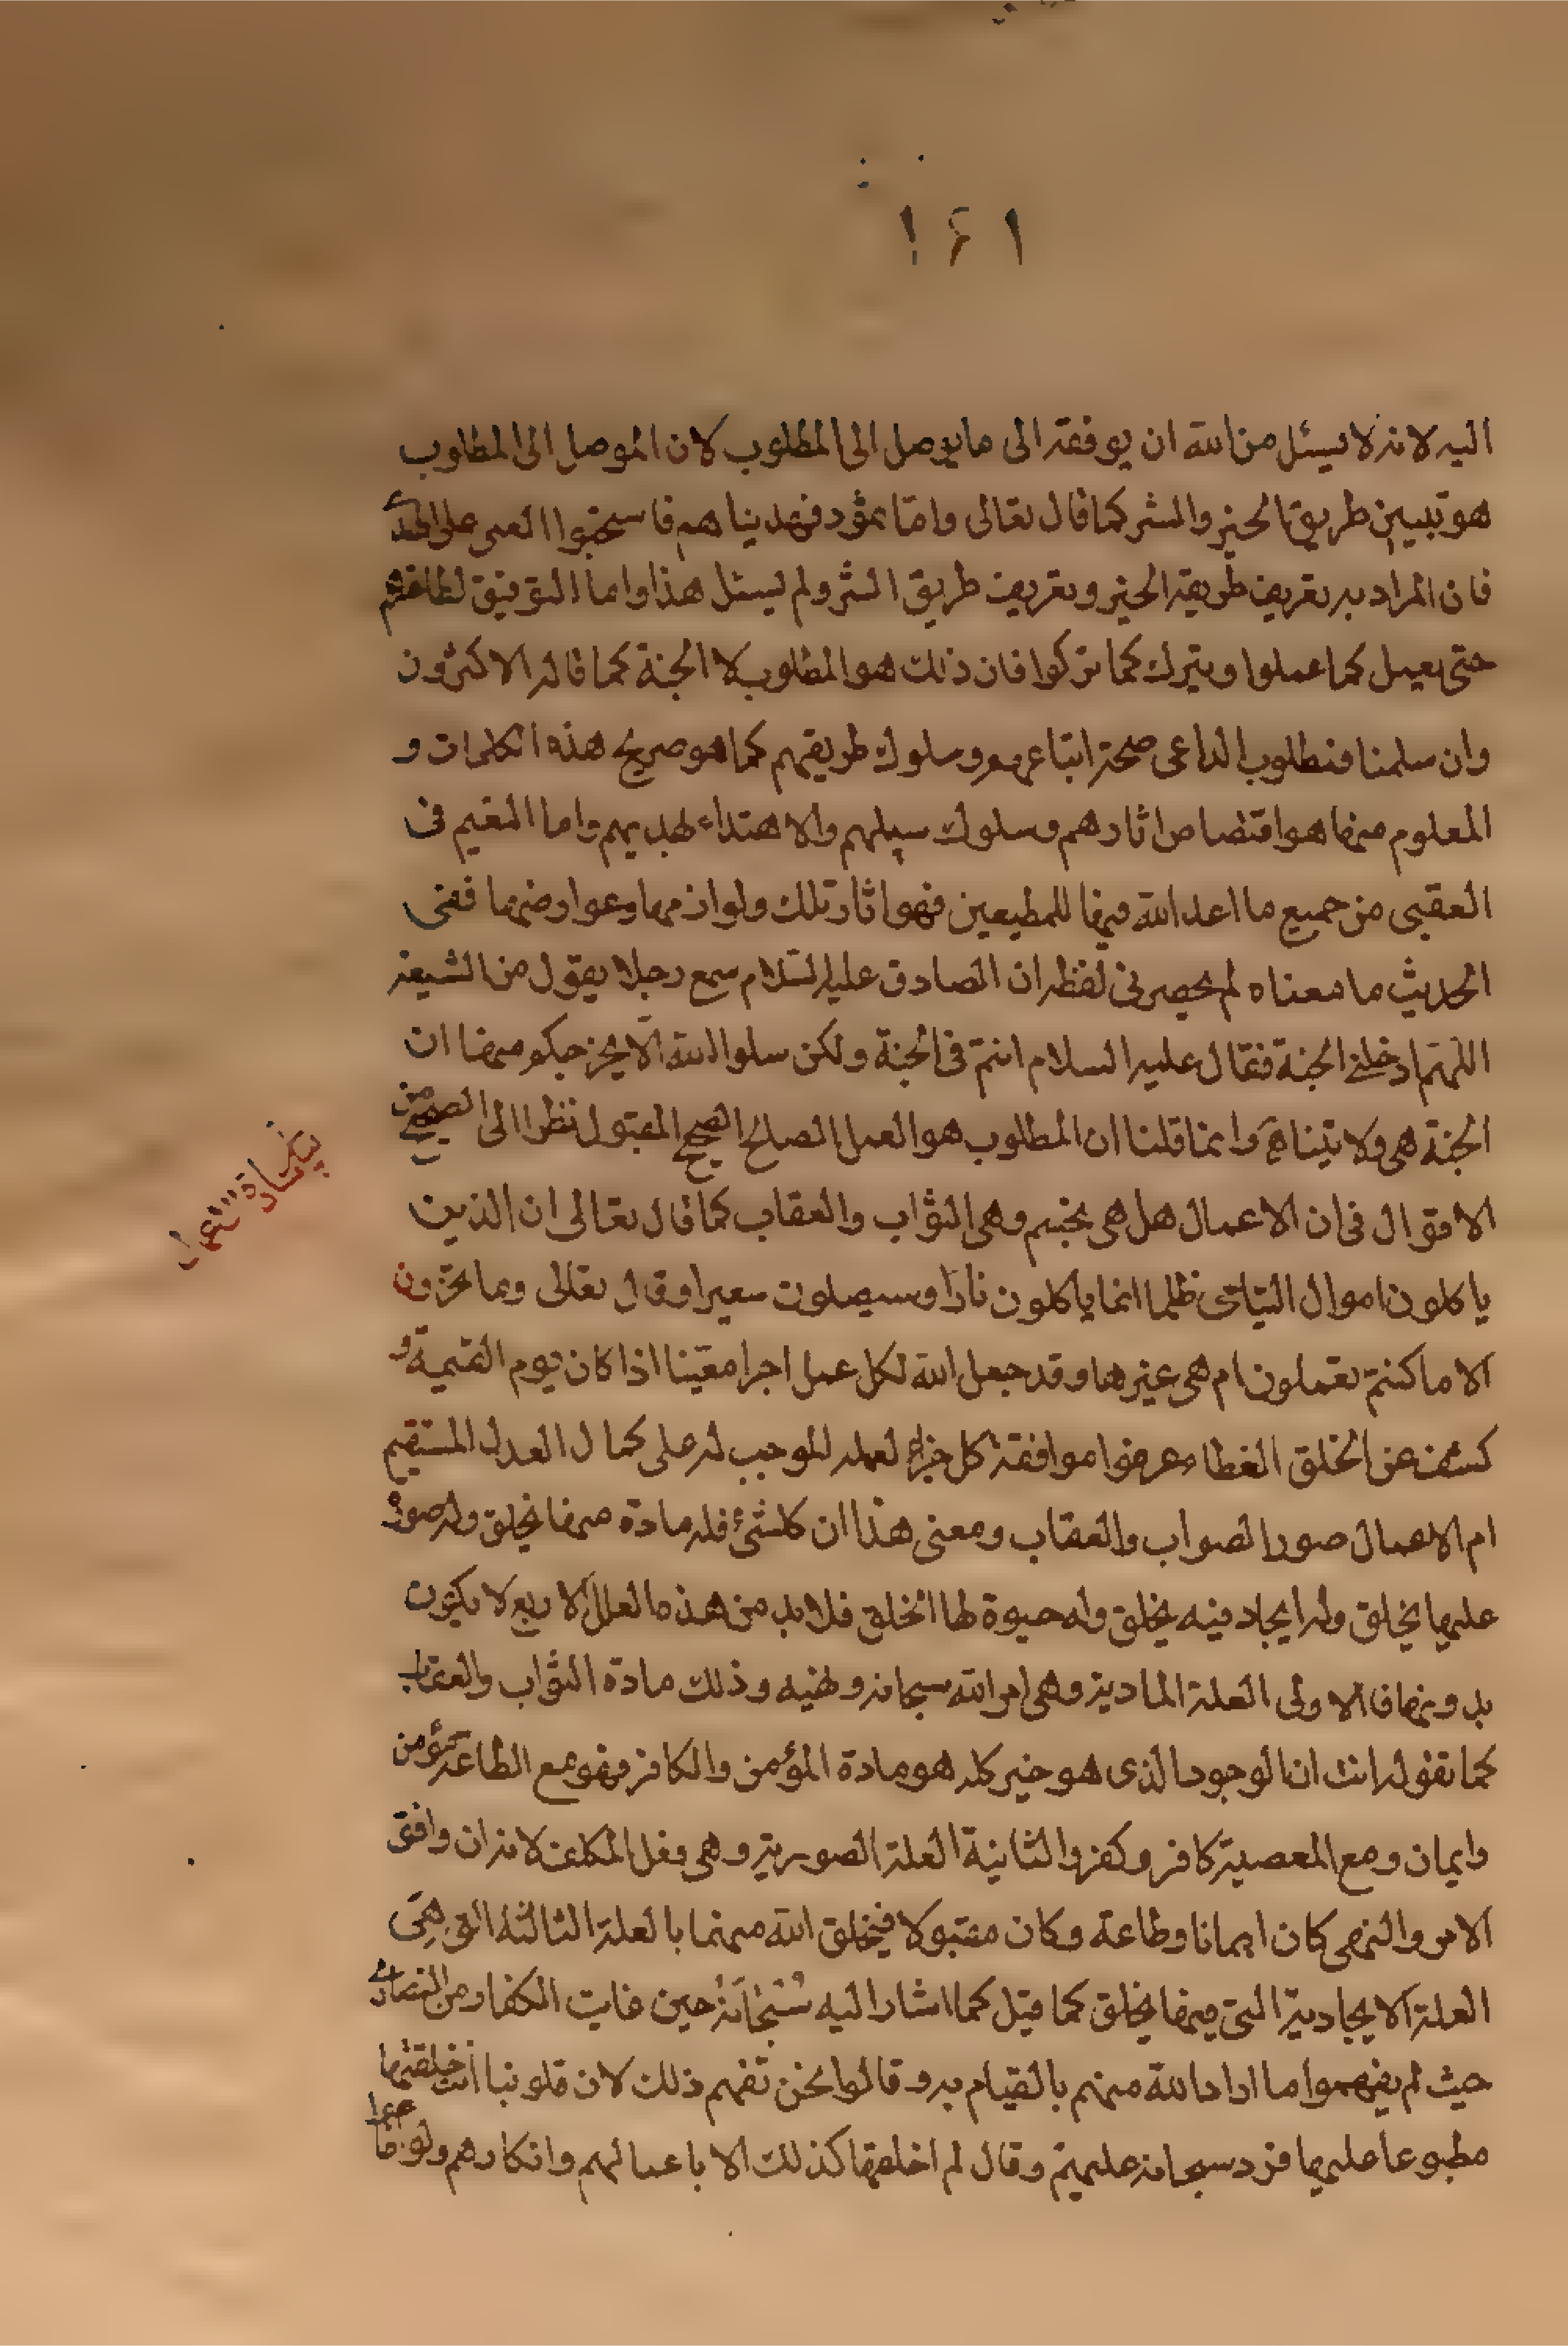 ١۶١
اليه لانه لا يسئل من الله ان يوفقه الى ما يوصل الى المطلوب لان الموصل الى المطلوب
هو تبيين طريق الخير والشر كما قال تعالى واما ثمود فهديناهم فاستحبوا العمى على الهدى
فان المراد به تعريف طريقة الخير وتعريف طريق الشر ولم يسئل هذا واما التوفيق لطاعتهم
حتى يعمل كما عملوا ويترك كما تركوا فان ذلك هو المطلوب لا الجنة كما قاله الاكثرون
وان سلمنا فمطلوب الداعى صحة اتباعهم وسلوك طريقهم كما هو صريح هذه الكلمات و
المعلوم منها هو اقتصاص اثارهم وسلوك سبيلهم والاهتداء بهديهم واما النعيم فى
العقبى من جميع ما اعد الله فيها للمطيعين فهو اثار تلك ولوازمها وعوارضها ففى
الحديث ما معناه لم يحضرنى لفظه ان الصادق عليه السلام سمع رجلا يقول من الشيعة
اللهم ادخلنى الجنة فقال عليه السلام انتم فى الجنة ولكن سلوا الله الا يخرجكم منها ان
الجنة هى ولايتنا وانما قلنا ان المطلوب هو العمل الصالح الصحيح المقبول نظرا الى الصحيح من
الاقوال فى ان الاعمال هل هى تجسم وهى الثواب والعقاب كما قال تعالى ان الذين
ياكلون اموال اليتامى ظلما انما ياكلون نارا وسيصلون سعيرا وقال تعالى وما تجزون
الا ما كنتم تعملون ام هى غيرها وقد جعل الله لكل عمل اجرا معينا اذا كان يوم القيمة و
كشف عن الخلق الغطاء عرفوا موافقة كل جزاء لعمله الموجب له على كمال العدل المستقيم
ام الاعمال صور الصواب والعقاب ومعنى هذا ان كلشئ فله مادة منها يخلق وله صورة
عليها يخلق وله ايجاد فيه يخلق وله حيوة لها الخلق فلا بد من هذه العلل الاربع لا يكون
بدونها فالاولى العلة المادية وهى امر الله سبحانه ونهيه وذلك مادة الثواب والعقاب
كما تقوله انت ان الوجود الذى هو خير كله هو مادة المؤمن والكافر فهو مع الطاعة مؤمن
وايمان ومع المعصية كافر وكفر والثانية العلة الصورية وهى فعل المكلف لانه ان وافق
الامر والنهى كان ايمانا وطاعة وكان مقبولا فيخلق الله منهما بالعلة الثالثة التى هى
العلة الايجادية التى فيها يخلق كما قيل كما اشار اليه سبحانه حين عاتب الكفار ومن النصارى
حيث لم يفهموا ما اراد الله منهم بالقيام به وقالوا نحن نفهم ذلك لان قلوبنا انت خلقتها
مطبوعا عليها فرد سبحانه عليهم وقال لم اخلقها كذلك الا باعمالهم وانكارهم ولو